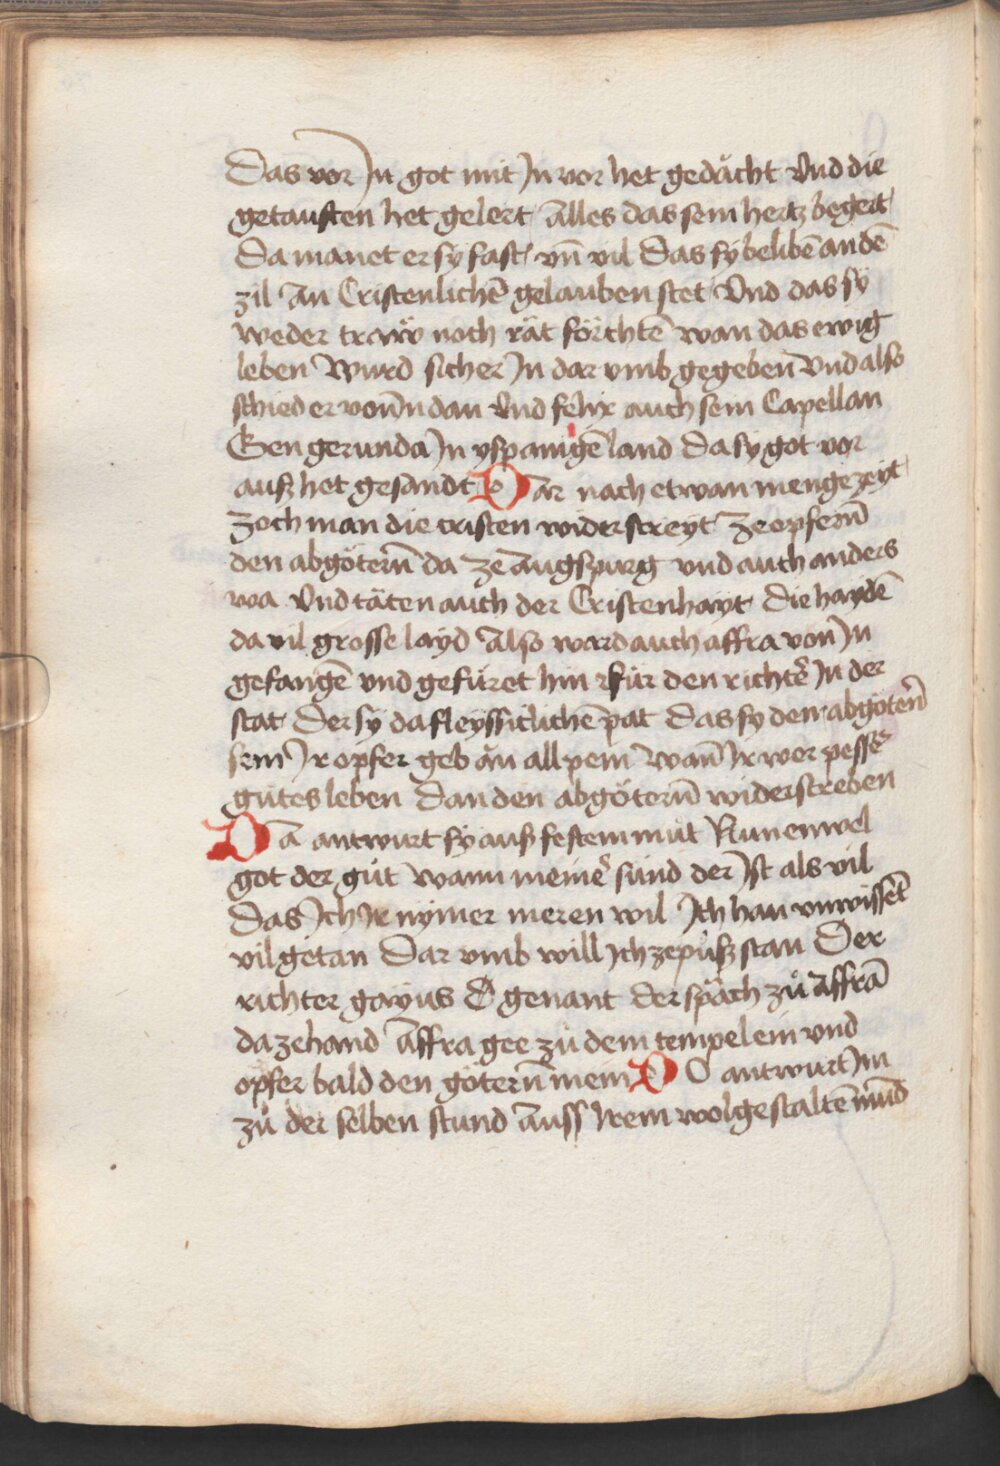 Das vor In got mit In vor het gedächt Vnd die
getauften het gelert Alles das sein hertz begert
Da manet er sy fast vn̄ vil Das sy belibē an dē
zil An Cristenlichē gelauben stet Vnd das sy
weder traw noch rät förchtē wan das ewig
leben Wurd sicher In dar vmb gegebenn̄ vnd also
schied er von In dan Vnd felix auch sein Capellan
Gen gerunda In yspanigē land Da sy got vor
auß het gesandt Dar nach etwan menge zeyt
zoch man die cristen widerstreyt ze opfern̄
den abgötern̄ da ze Augspurg vnd auch anders
wa Vnd täten auch der Cristenhayt Die haydē
da vil grosse layd Also ward auch affra von In
gefangē vnd gefüret hin für den richtē In der
stat Der sy da fleyssiclichē pat Das sy den abgötern̄
sein Ir opfer geb än all pein Wan̄ Ir wer pesse
gutes leben Dan den abgötern̄ widerstreben
Da antwurt sy auß festem mut Nun enwel
got der gut Wann meine sünd der Ist als vil
Das Ich Ir nymer meren wil Ich han vnwissēt
vil getan Dar vmb will Ich ze pusz stan Der
richter gayus O genant der späch zů Affrā
da zehand Affra gee zů dem tempel ein vnd
opfer bald den götern̄ mein DO antwurt Im
zů der selben stund Auss Irem wolgestaltē mūd